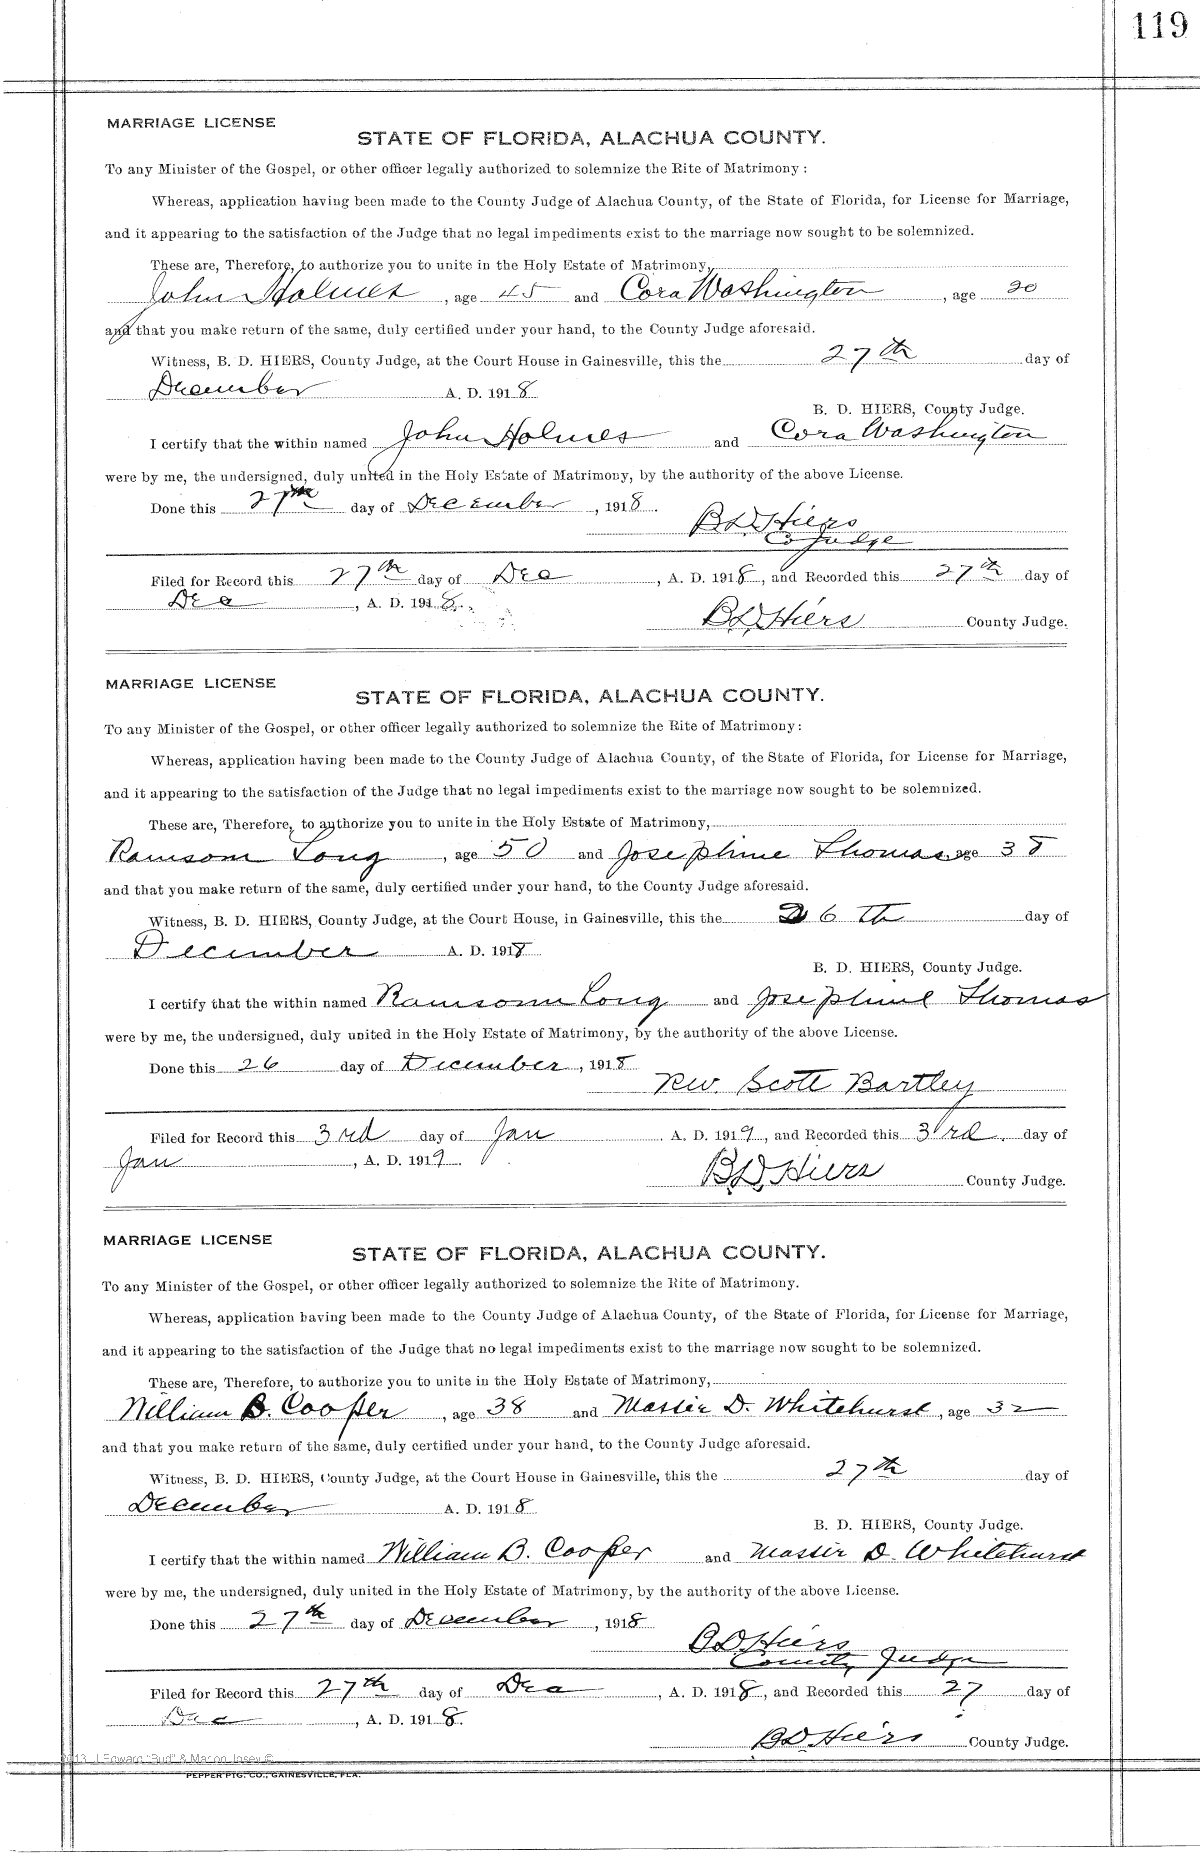 119
MARRIAGE LICENSE
STATE OF FLORIDA, ALACHUA COUNTY.
To any Minister of the Gospel, or other officer legally authorized to solemnize the Rite of Matrimony:
Whereas, application having been made to the County Judge of Alachua County, of the State of Florida, for License for Marriage,
and it appearing to the satisfaction of the Judge that no legal impediments exist to the marriage now sought to be solemnized.
These are, Therefore, to authorize you to unite in the Holy Estate of Matrimony,
John Holmes, age 45 and Cora Washington, age 20
and that you make return of the same, duly certified under your hand, to the County Judge aforesaid.
Witness, B. D. HIERS, County Judge, at the Court House in Gainesville, this the 27th day of
December A. D. 1918
B. D. HIERS, County Judge.
I certify that the within named John Holmes and Cora Washington
were by me, the undersigned, duly united in the Holy Estate of Matrimony, by the authority of the above License.
Done this 27th day of December, 1918.
B D Hiers
Co Judge
Filed for Record this 27th day of Dec, A. D. 1918, and Recorded this 27th day of
Dec, A. D. 1918.
B D Hiers County Judge.
MARRIAGE LICENSE
STATE OF FLORIDA, ALACHUA COUNTY.
To any Minister of the Gospel, or other officer legally authorized to solemnize the Rite of Matrimony:
Whereas, application having been made to the County Judge of Alachua County, of the State of Florida, for License for Marriage,
and it appearing to the satisfaction of the Judge that no legal impediments exist to the marriage now sought to be solemnized.
These are, Therefore, to authorize you to unite in the Holy Estate of Matrimony,
Ransom Long, age 50 and Josephine Thomas, age 38
and that you make return of the same, duly certified under your hand, to the County Judge aforesaid.
Witness, B. D. HIERS, County Judge, at the Court House, in Gainesville, this the 26th day of
December A. D. 1918
B. D. HIERS, County Judge.
I certify that the within named Ransom Long and Josephine Thomas
were by me, the undersigned, duly united in the Holy Estate of Matrimony, by the authority of the above License.
Done this 26 day of December, 1918
Rev. Scott Bartley
Filed for Record this 3rd day of Jan A. D. 1919, and Recorded this 3rd. day of
Jan, A. D. 1919.
B D Hiers County Judge.
MARRIAGE LICENSE
STATE OF FLORIDA, ALACHUA COUNTY.
To any Minister of the Gospel, or other officer legally authorized to solemnize the Rite of Matrimony.
Whereas, application having been made to the County Judge of Alachua County, of the State of Florida, for License for Marriage,
and it appearing to the satisfaction of the Judge that no legal impediments exist to the marriage now sought to be solemnized.
These are, Therefore, to authorize you to unite in the Holy Estate of Matrimony,
William B. Cooper, age 38 and Massie D. Whitehurst, age 32
and that you make return of the same, duly certified under your hand, to the County Judge aforesaid.
Witness, B. D. HIERS, County Judge, at the Court House in Gainesville, this the 27th day of
December A. D. 1918
B. D. HIERS, County Judge.
I certify that the within named William B. Cooper and Massie D. Whitehurst
were by me, the undersigned, duly united in the Holy Estate of Matrimony, by the authority of the above License.
Done this 27th day of December, 1918
B D Hiers
County Judge
Filed for Record this 27th day of Dec, A. D. 1918, and Recorded this 27 day of
Dec, A. D. 1918.
B D Hiers County Judge.
2013 J Edward "Bud" & Marion Josey ©
PEPPER PTG. CO., GAINESVILLE, FLA.